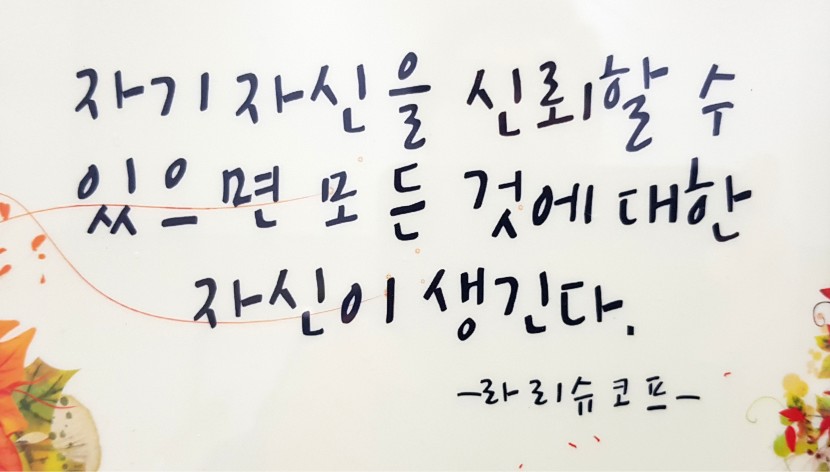 자기 자신을 신뢰할 수
있으면 모든 것에 대한
자신이 생긴다.
-라리슈코프-